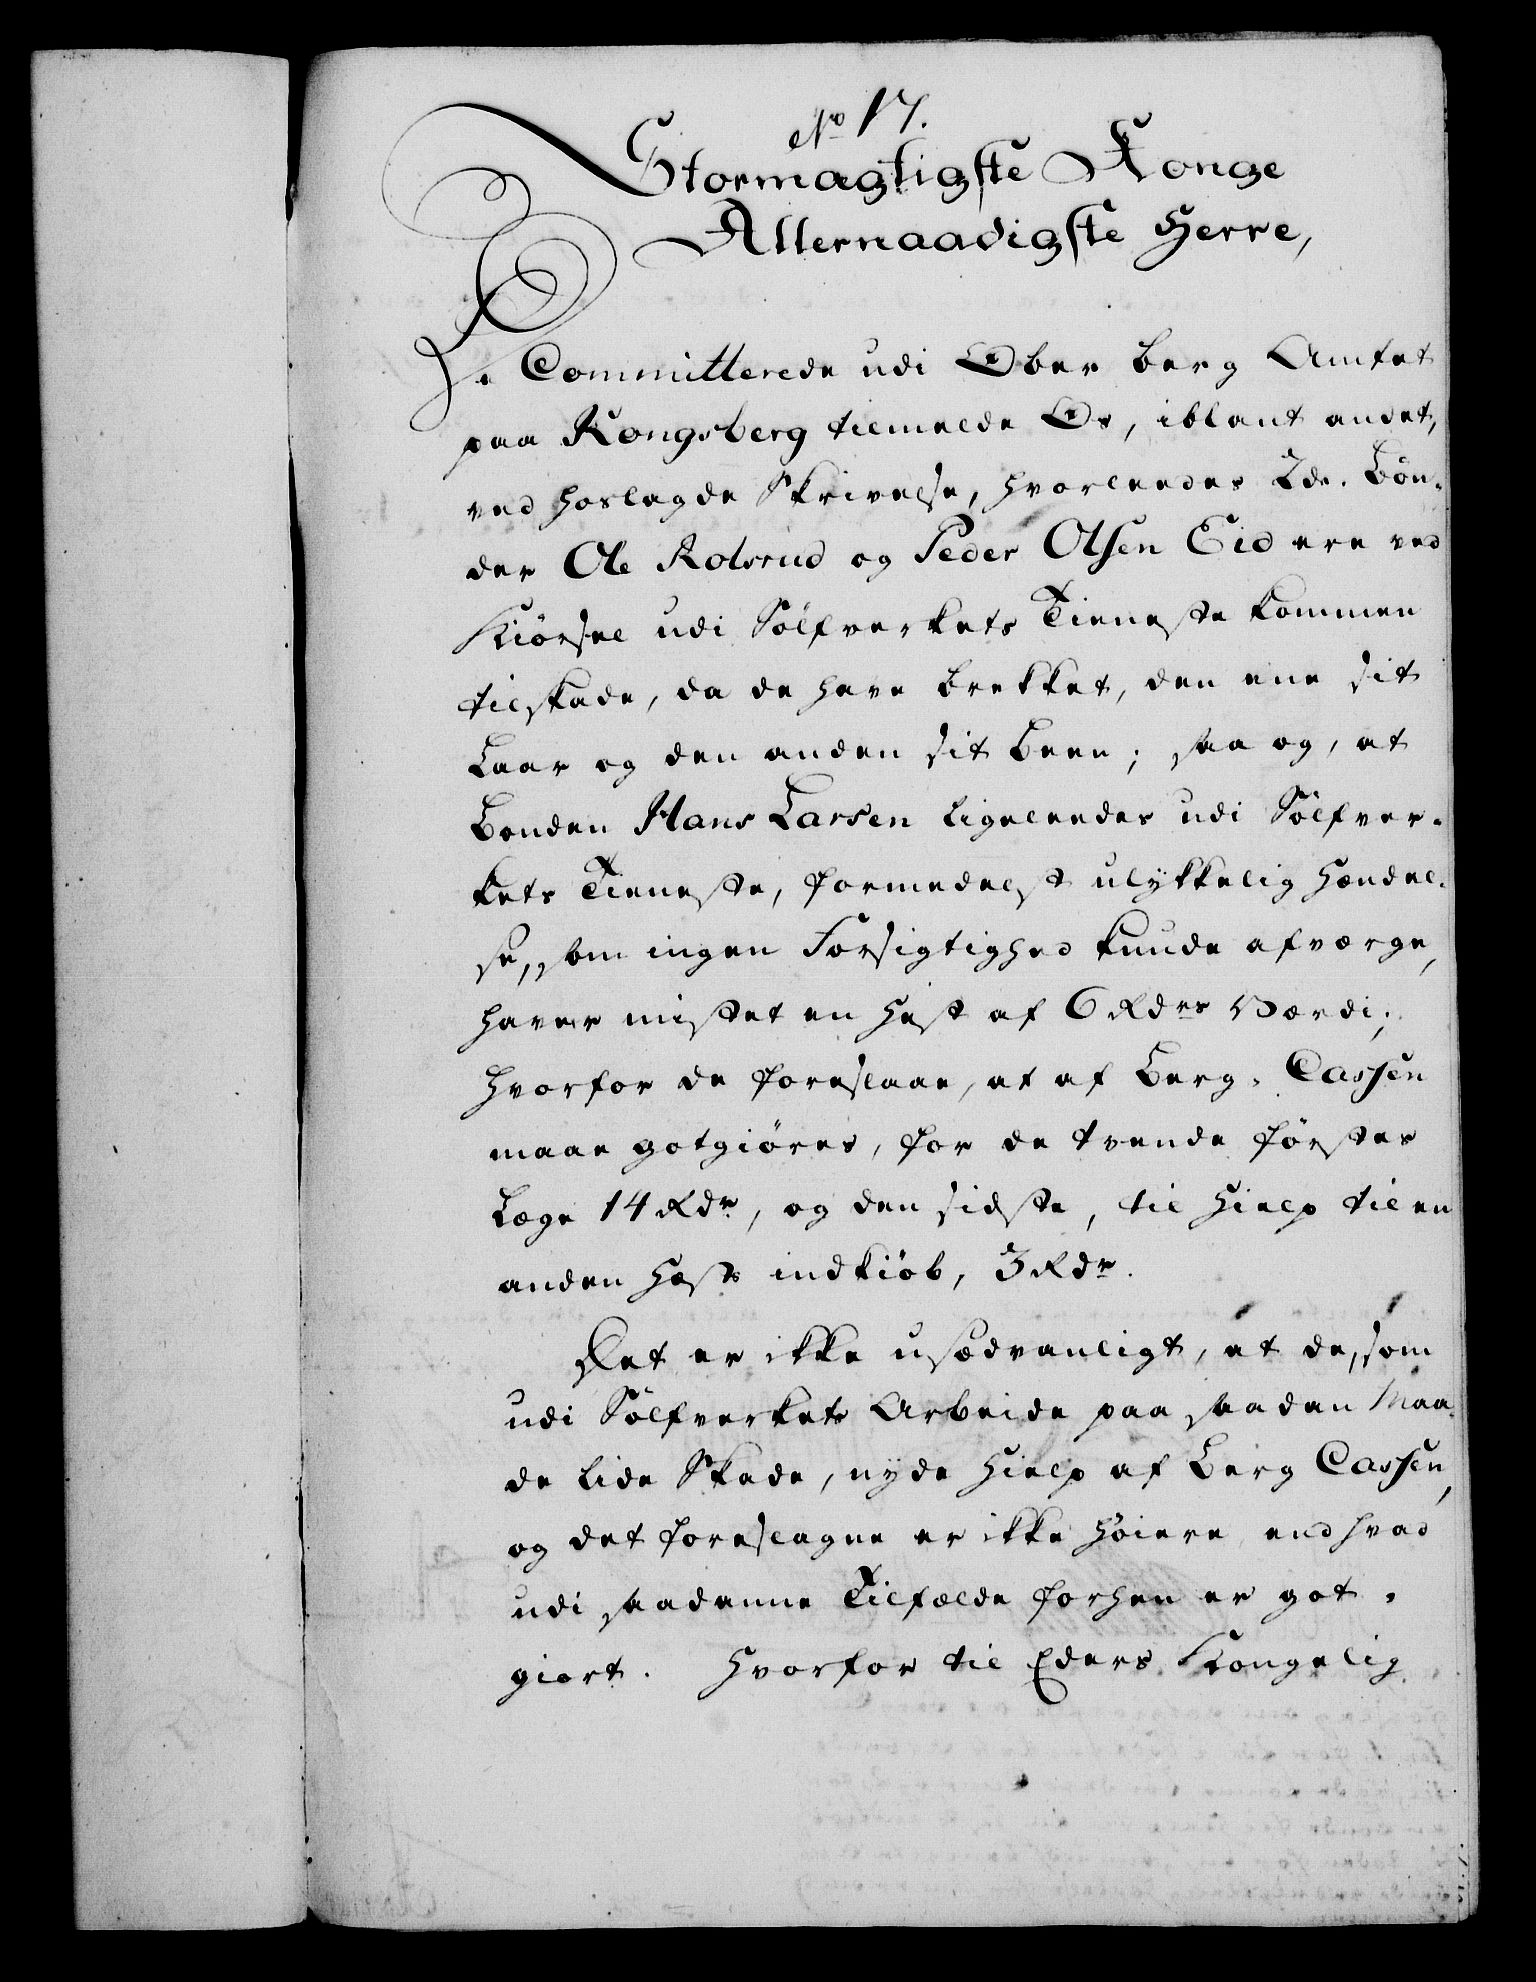 No 17.
Stormagtigste Konge
Allernaadigste Herre,
De Committerede udi Ober berg Amtet
paa Kongsberg tilmelde Os, iblant andet,
ved hoslagde Skrivelse, hvorleedes 2de. Bøn-
der Ole Rolsrud og Peder Olsen Eid ere ved
Kiørsel udi Sølfverkets Tieneste kommen
tilskade, da de have brekket, den ene sit
Laar og den anden sit Been; saa og, at
Bonden Hans Larsen ligeleedes udi Sølfver-
kets Tieneste, formedelst ulykkelig Hændel-
se, som ingen Forsigtighed kunde afværge,
haver mistet en Hest af 6 Rdrs Værdi;
Hvorfor de foreslaae, at af Berg-Cassen
maae gotgiøres, for de tvende førstes
Læge 14 Rdr, og den sidste, til Hielp til en
anden Hests indkiøb, 3 Rdr.
Det er ikke usædvanligt, at de, som
udi Sølfverkets Arbeide paa saadan Maa-
de lide Skade, nyde Hielp af Berg Cassen,
og det foreslagne er ikke høiere end hvad
udi saadanne Tilfælde forhen er got-
giort. Hvorfor til Eders Kongelig